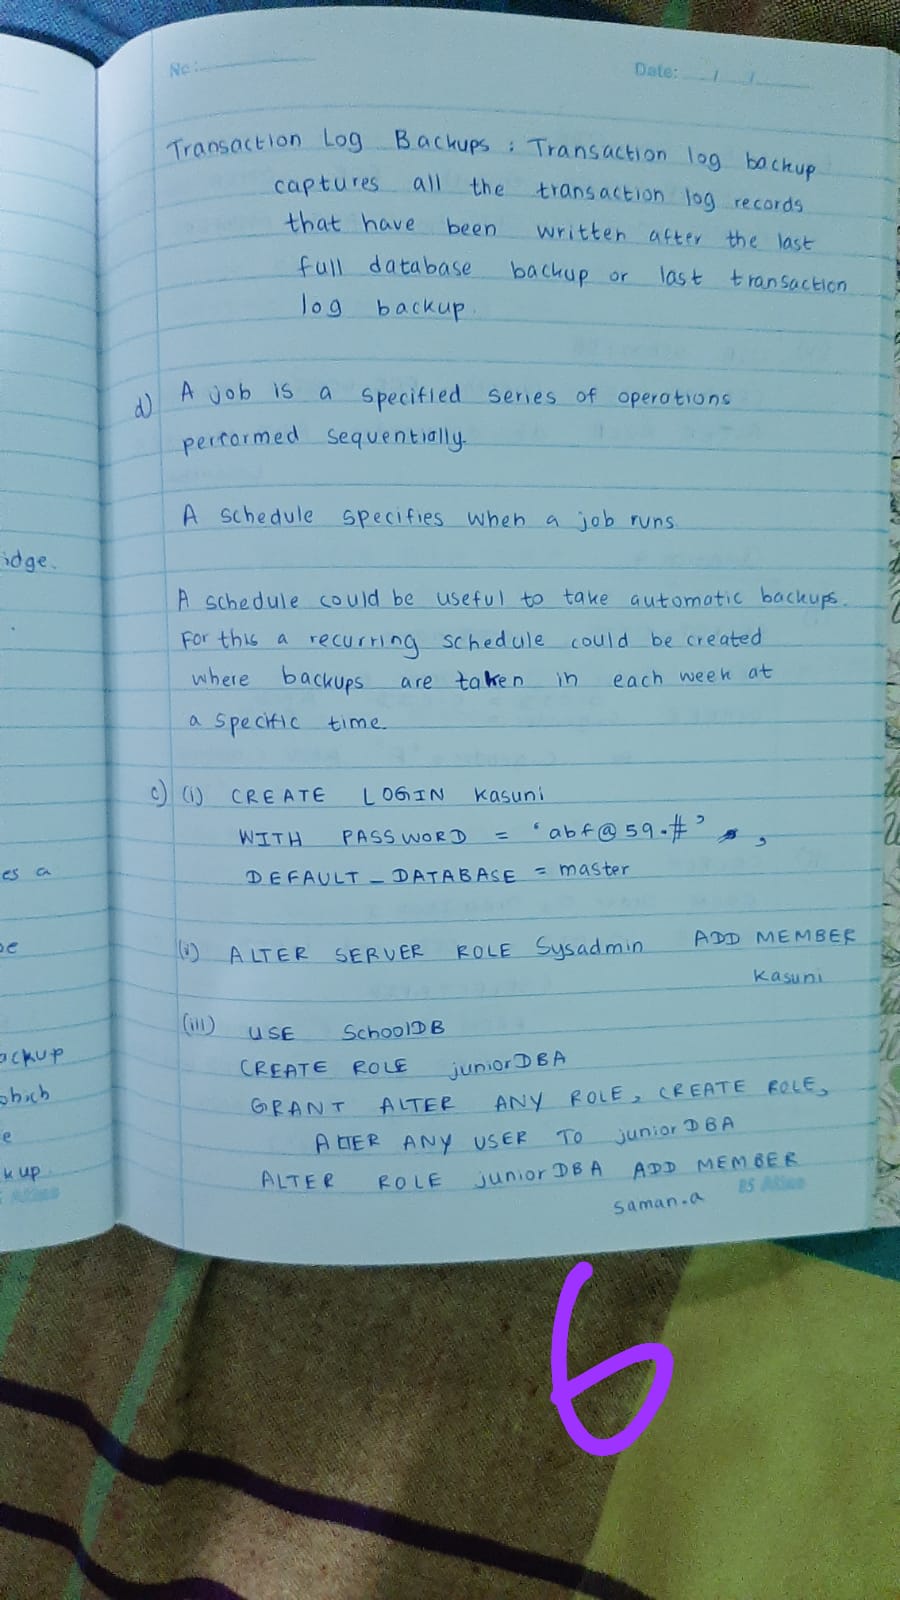 No:
Date: / /
Transaction Log Backups : Transaction log backup
captures all the transaction log records
that have been written after the last
full database backup or last transaction
log backup.
d) A job is a specified series of operations
performed sequentially.
A schedule specifies when a job runs
A schedule could be useful to take automatic backups.
For this a recurring schedule could be created
where backups are taken in each week at
a specific time.
c) (i) CREATE LOGIN Kasuni
WITH PASSWORD = 'abf@59.#' ,
DEFAULT_DATABASE = master
(ii) ALTER SERVER ROLE Sysadmin ADD MEMBER
Kasuni
(iii) USE SchoolDB
CREATE ROLE juniorDBA
GRANT ALTER ANY ROLE, CREATE ROLE,
ALTER ANY USER TO juniorDBA
ALTER ROLE juniorDBA ADD MEMBER
saman.a
idge.
es a
ackup
which
e
kup
6